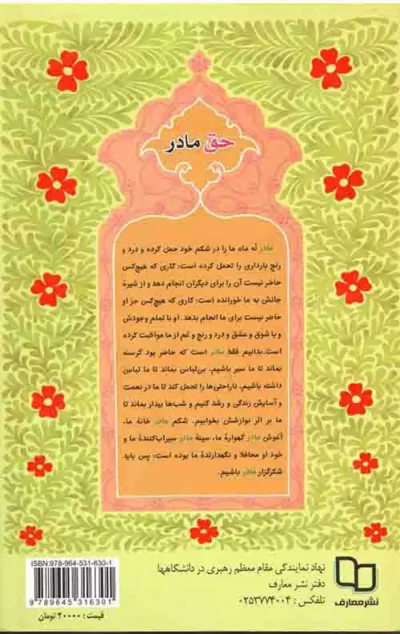 حق مادر
مادر نُه ماه ما را در شکم خود حمل کرده و درد و
رنج بارداری را تحمل کرده است؛ کاری که هیچ‌کس
حاضر نیست آن را برای دیگران انجام دهد و از شیرهٔ
جانش به ما خورانده است؛ کاری که هیچ‌کس جز او
حاضر نیست برای ما انجام بدهد. او با تمام وجودش
و با شوق و عشق و درد و رنج و غم از ما مواظبت کرده
است.بدانیم فقط مادر است که حاضر بود گرسنه
بماند تا ما سیر باشیم، بی‌لباس بماند تا ما لباس
داشته باشیم، ناراحتی‌ها را تحمل کند تا ما در نعمت
و آسایش زندگی و رشد کنیم و شب‌ها بیدار بماند تا
ما بر اثر نوازشش بخوابیم. شکم مادر خانهٔ ما،
آغوش مادر گهوارهٔ ما، سینهٔ مادر سیراب‌کنندهٔ ما و
خود او محافظ و نگهدارندهٔ ما بوده است؛ پس باید
شکرگزار مادر باشیم.
نهاد نمایندگی مقام معظم رهبری در دانشگاهها
دفتر نشر معارف
تلفکس : ۰۲۵۳۷۷۴۰۰۴
نشر معارف
ISBN:978-964-531-630-1
9 789645 316301
قیمت: ۲۰۰۰۰ تومان